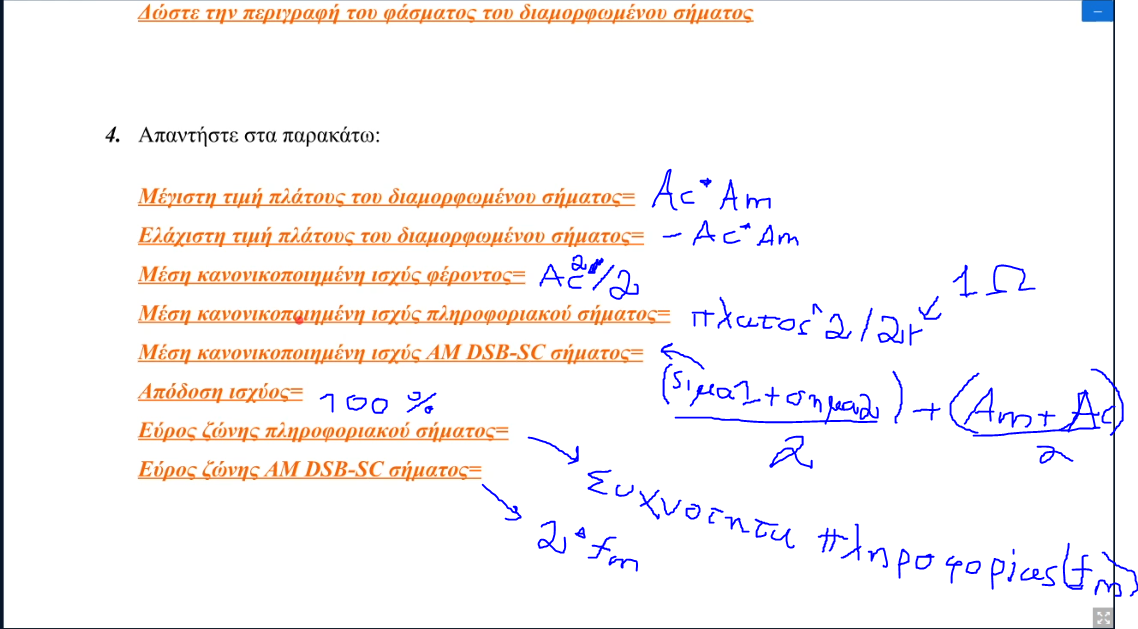 Δώστε την περιγραφή του φάσματος του διαμορφωμένου σήματος
4. Απαντήστε στα παρακάτω:
Μέγιστη τιμή πλάτους του διαμορφωμένου σήματος= Ac*Am
Ελάχιστη τιμή πλάτους του διαμορφωμένου σήματος= -Ac*Am
Μέση κανονικοποιημένη ισχύς φέροντος= Ac^2/2
1Ω
Μέση κανονικοποιημένη ισχύς πληροφοριακού σήματος= πλατος^2/2r
Μέση κανονικοποιημένη ισχύς AM DSB-SC σήματος=
(σιμα1+σημα2)/2 + (Am+Ac)/2
Απόδοση ισχύος= 100 %
Εύρος ζώνης πληροφοριακού σήματος=
Συχνοτητα πληροφοριας(fm)
Εύρος ζώνης AM DSB-SC σήματος=
2*fm